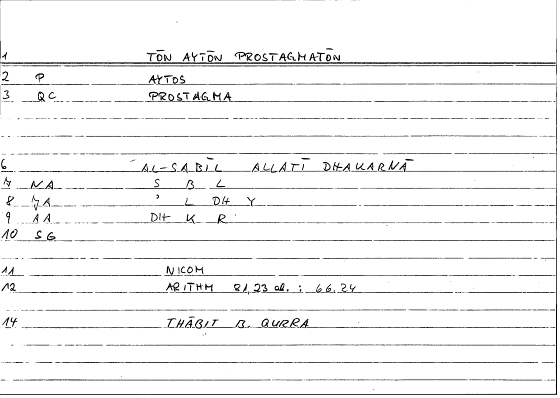 1 TŌN AYTŌN PROSTAGMATŌN
2 P AYTOS
3 QC PROSTAGMA
6 AL-SABĪL ALLATĪ DHAKARNĀ
7 NA S B L
8 JA ' L DH Y
9 AA DH K R
10 SG
11 NICOM
12 ARITHM 81,23 al. : 66,24
14 THĀBIT B. QURRA